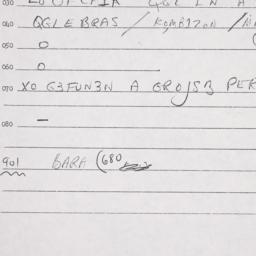 040 QGLEBRAS / KOMBIZON /
050 O
060 O
070 XO G3FUN3N A GROJSB PER
080 –
901 BARA (680